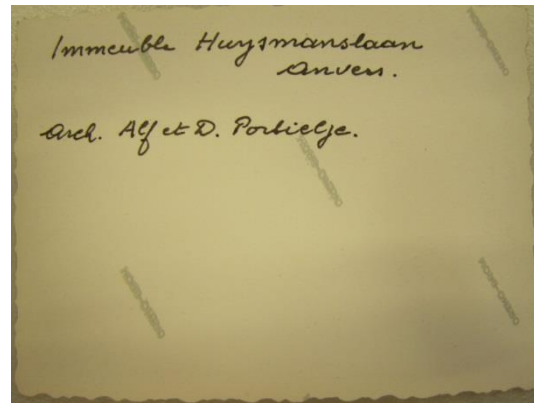 Immeuble Huysmanslaan
Anvers.
Arch. Alf et D. Portielje.